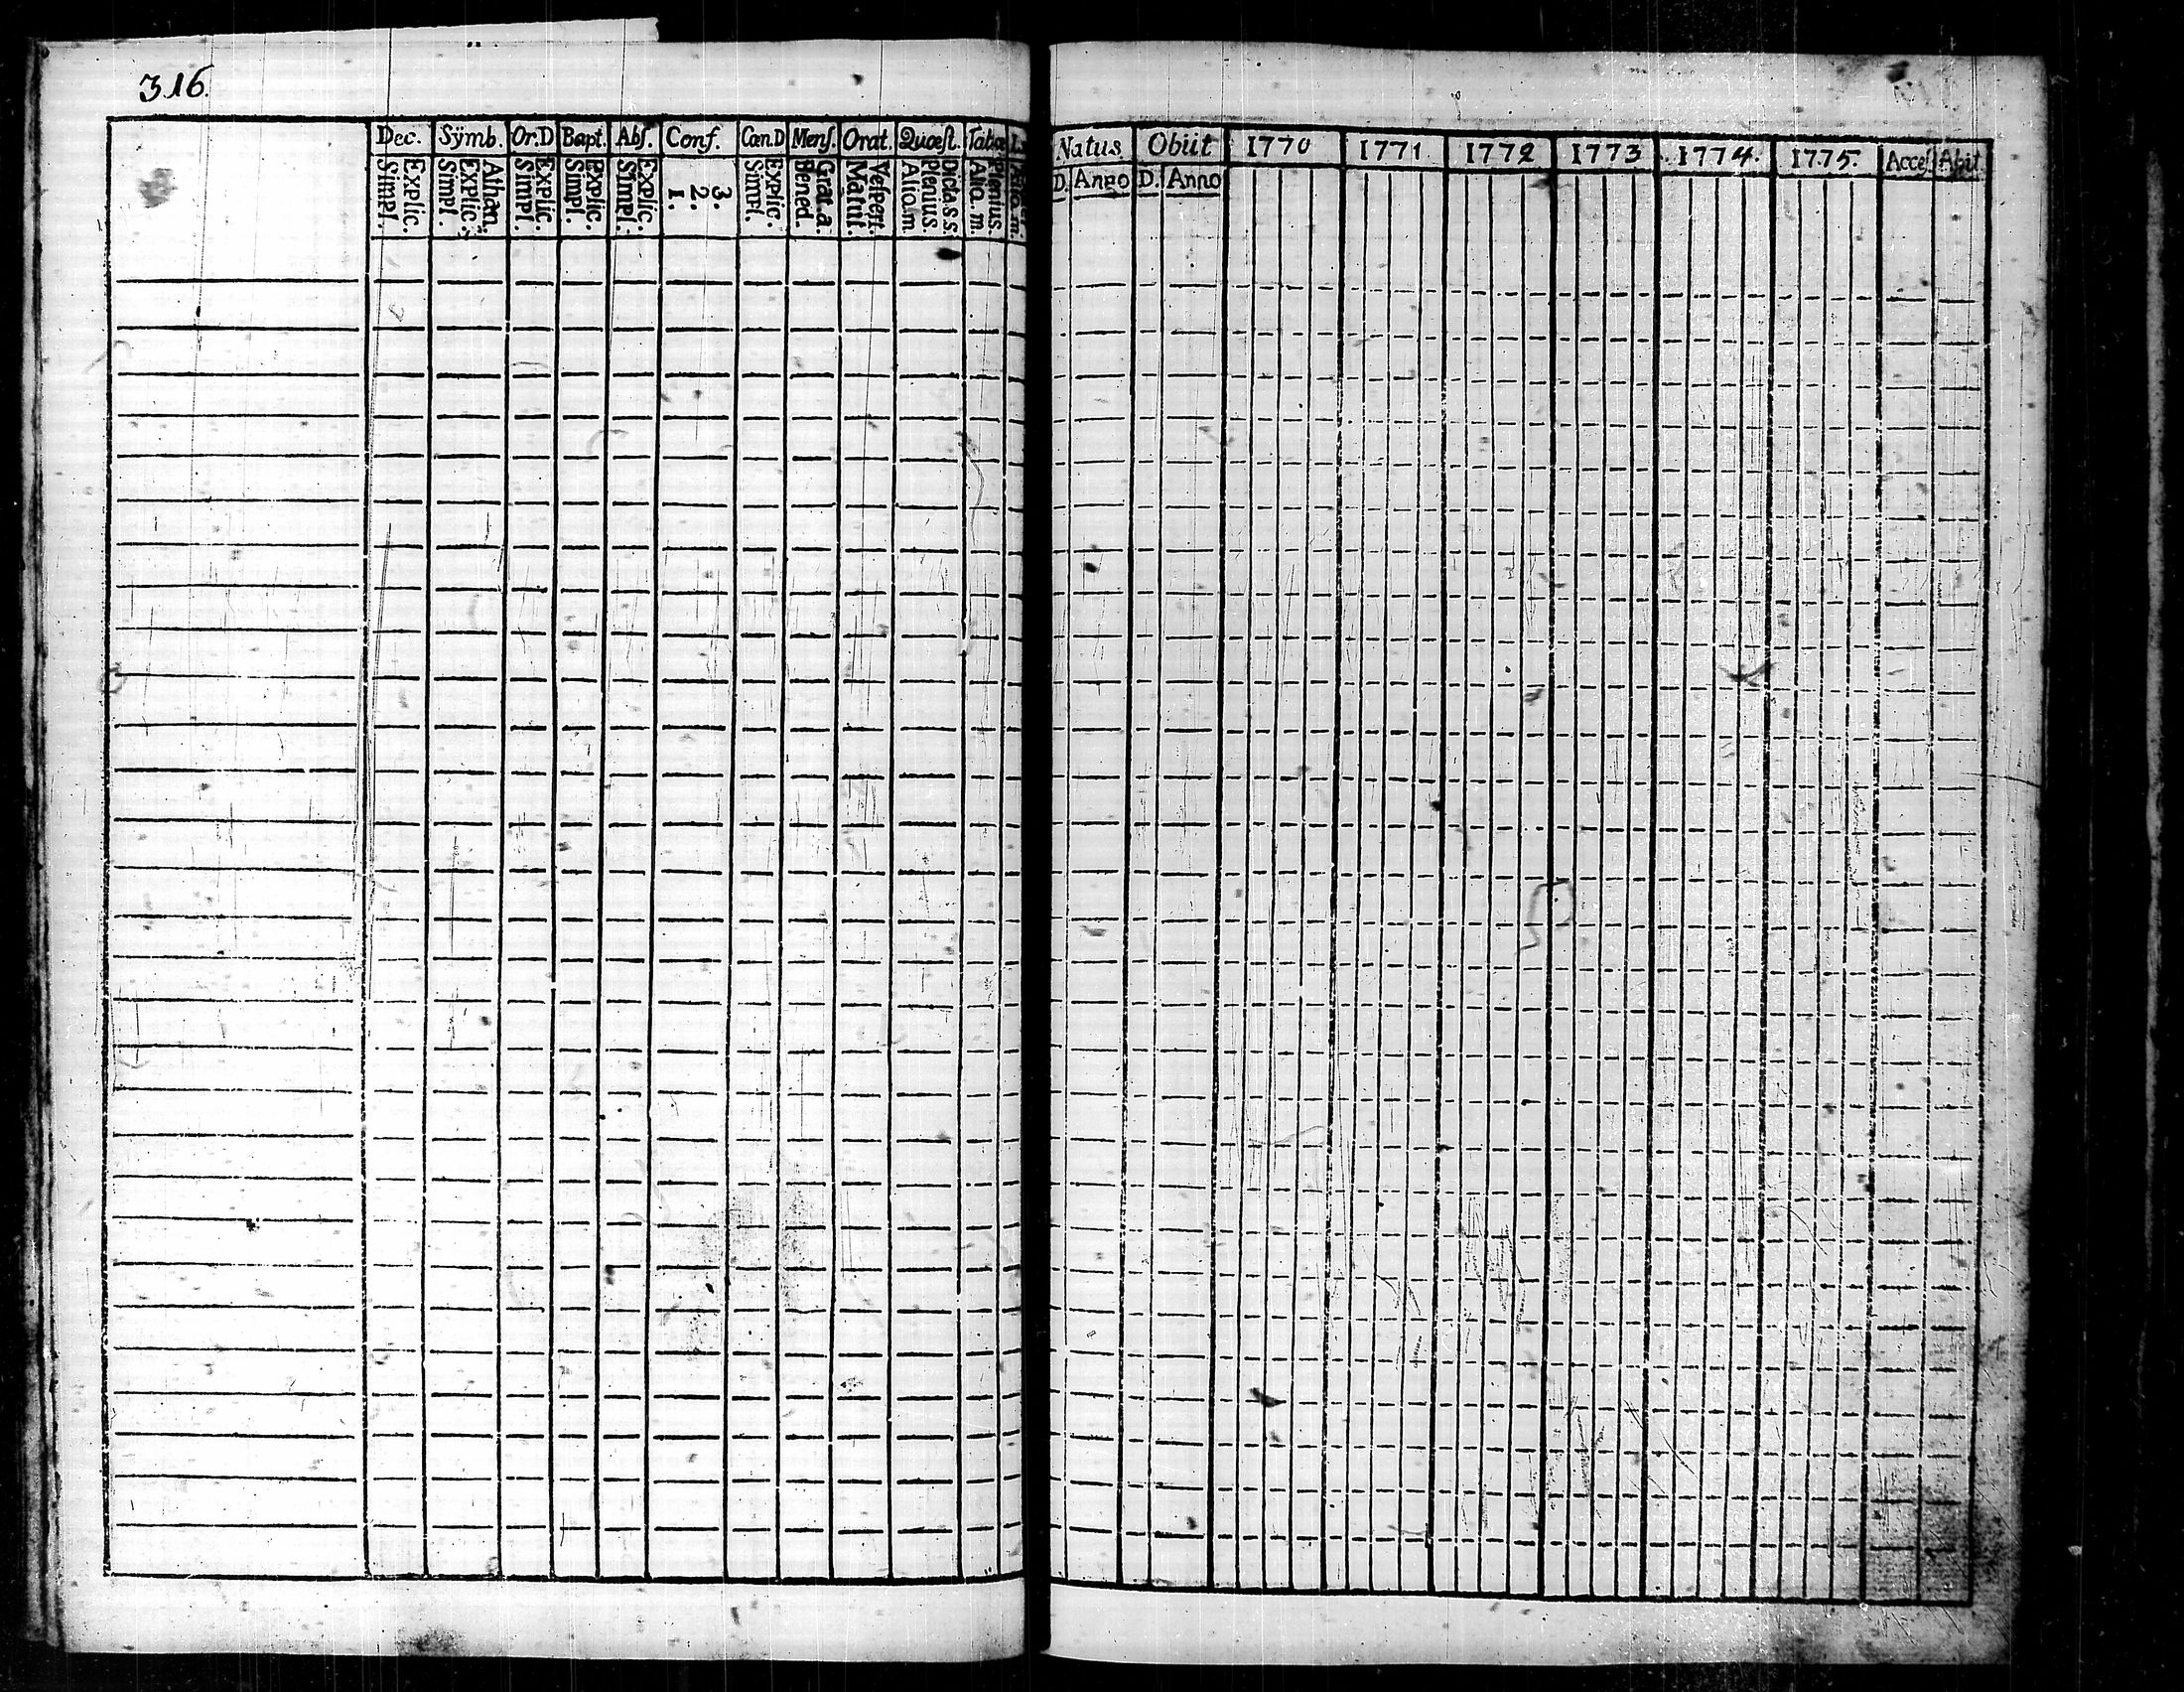 316.
Dec. Sÿmb. Or.D Bapt. Abſ. Conf. Cœn.D Menſ. Orat. Quœſt.
Explic. Simpl.
Athan. Explic. Simpl.
Explic. Simpl.
Explic. Simpl.
Explic. Simpl.
3. 2. 1.
Explic. Simpl.
Grat. a. Bened.
Veſpert. Matut.
Dicta s s. Plenius. Alio. m
Plenius. Alio. m.
Natus. Obiit 1770 1771 1772 1773 1774. 1775. Acceſ. Abit
D. Anno D. Anno